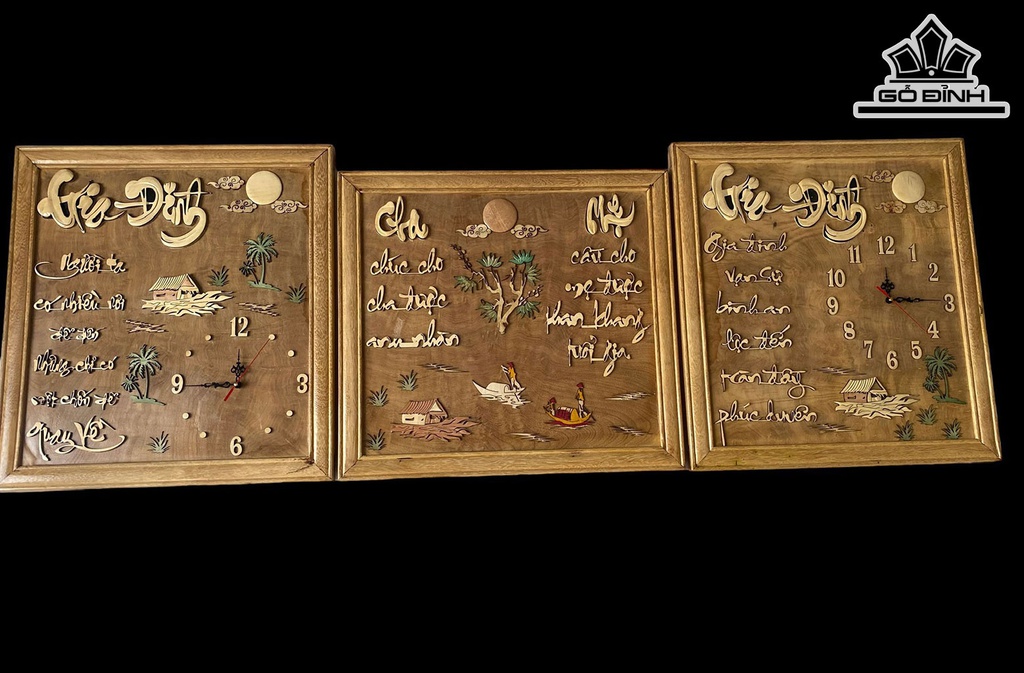 GỖ ĐỈNH
Gia Đình
Người ta
có nhiều nơi
để đến
Nhưng chỉ có
một chốn để
quay về
12
9
3
6
Cha
chúc cho
cha được
an nhàn
Mẹ
cầu cho
mẹ được
khan khang
tuổi già
Gia Đình
gia đình
vạn sự
bình an
lộc đến
tràn đầy
phúc duyên
12
1
2
3
4
5
6
7
8
9
10
11